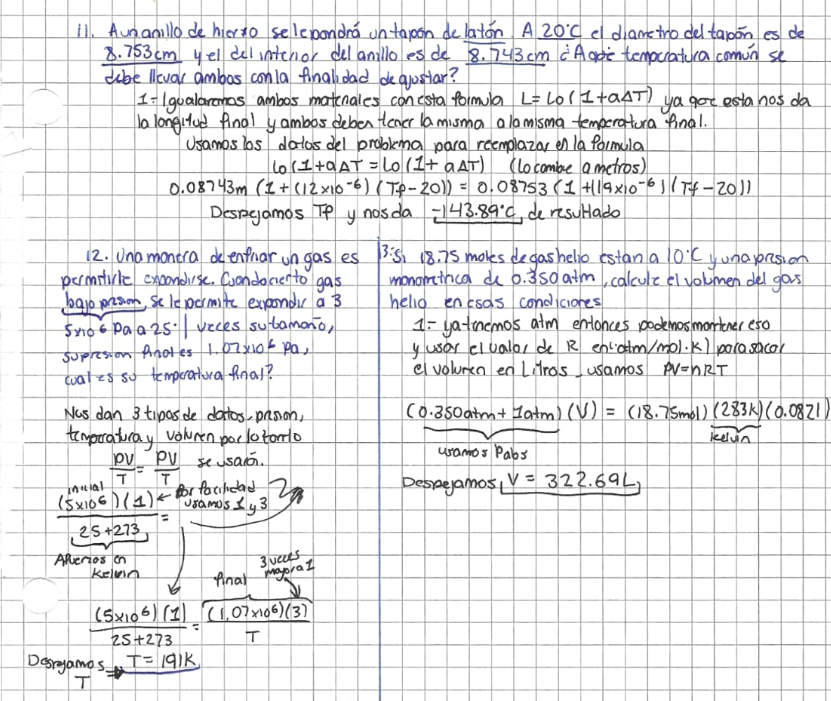 11. A un anillo de hierro se le pondrá un tapón de latón. A 20°C el diametro del tapón es de
8.753cm y el del interior del anillo es de 8.743cm ¿A que temperatura común se
debe llevar ambos con la finalidad de ajustar?
1- Igualaremos ambos materiales con esta formula L= Lo(1+aΔT) ya que esta nos da
la longitud final y ambos deben tener la misma a la misma temperatura final.
Usamos los datos del problema para reemplazar en la formula
Lo(1+aΔT = Lo(1+ aΔT) (Lo cambie a metros)
0.08743m (1+(12x10⁻⁶)(Tf-20)) = 0.08753(1+(19x10⁻⁶)(Tf-20))
Despejamos Tf y nos da -143.89°C, de resultado
12. Una manera de enfriar un gas es
permitirle expandirse. Cuando cierto gas
bajo presion, se le permite expandir a 3
5x10⁶ Pa a 25° | veces su tamaño,
su presion final es 1.07x10⁶ Pa,
cual es su temperatura final?
Nos dan 3 tipos de datos. presion,
temperatura y volumen por lo tanto
PV = PV se usará.
T T
inicial
(5x10⁶)(1) ← Por facilidad
usamos 1 y 3
=
25+273
Ahemos en
Kelvin
3 veces
mayor a 1
final
(5x10⁶)(1) = (1,07x10⁶)(3)
25+273 T
Despejamos T = 191K
T
13. Si 18.75 moles de gas helio estan a 10°C y una presion
manometrica de 0.350 atm, calcule el volumen del gas
helio en esas condiciones
1- ya tenemos atm entonces podemos mantener eso
y usar el valor de R en L·atm/mol·K) para sacar
el volumen en Litros. usamos PV=nRT
(0.350atm + 1atm)(V) = (18.75mol)(283K)(0.0821)
usamos Pabs
Kelvin
Despejamos, V = 322.69L